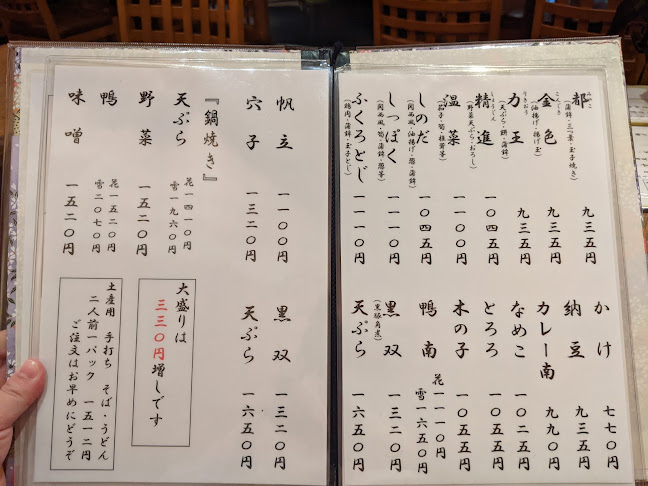 かけ 七七〇円
納豆 九三五円
カレー南 九九〇円
なめこ 一〇二五円
とろろ 一〇五五円
木の子 一〇五五円
鴨南 花一一一〇円
雪一六五〇円
黒双 一三二〇円
(黒豚角煮)
天ぷら 一六五〇円
都 九三五円
みやこ
(蒲鉾・三つ葉・玉子焼き)
金色 九三五円
こんじき
(油揚げ・揚げ玉)
力王 九三五円
りきおう
(天ぷら・餅・蒲鉾)
精進 一〇四五円
しょうじん
(野菜天ぷら・おろし)
温菜 一一〇〇円
しのだ 一〇四五円
(関西風・油揚げ・葱・蒲鉾)
しっぽく 一一一〇円
ふくろとじ 一一一〇円
(鶏肉・蒲鉾・玉子とじ)
帆立 一一〇〇円
穴子 一三二〇円
黒双 一三二〇円
天ぷら 一六五〇円
『鍋焼き』
天ぷら 花一四一〇円
雪一九六〇円
野菜 一五二〇円
鴨 花一五二〇円
雪二〇七〇円
味噌 一五二〇円
大盛りは
三三〇円増しです
土産用 手打ち そば・うどん
二人前一パック 一五一二円
ご注文はお早めにどうぞ